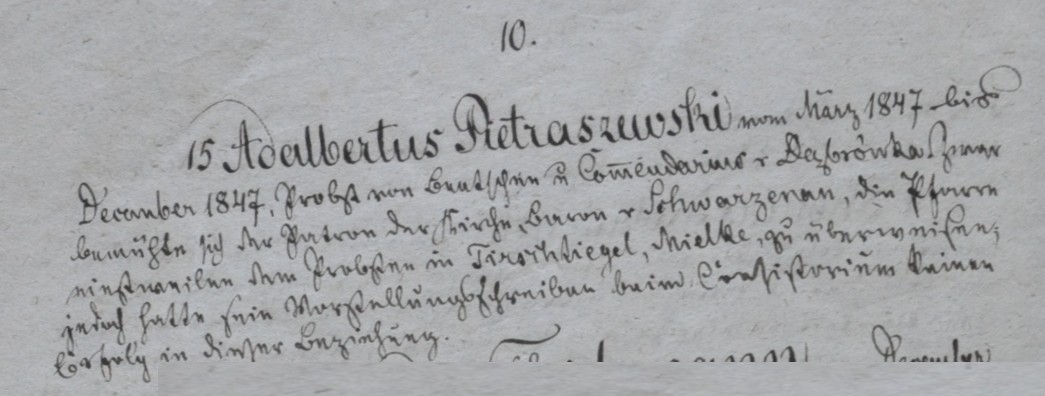 10.
15 Adalbertus Pietraszewski vom März 1847 bis
December 1847, Probst von Bentschen u Com̄endarius v Dąbrówka. Zwar
bemühte sich der Patron der Kirche, Baron v Schwarzenau, die Pfarre
einstweilen dem Probsten in Tirschtiegel, Mielke, zu überweisen;
jedoch hatte sein Vorstellungsschreiben beim Consistorium keinen
Erfolg in dieser Beziehung.
December